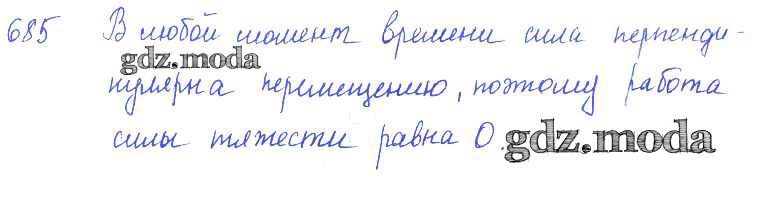 685 В любой момент времени сила перпенди-
gdz.moda
кулярна перемещению, поэтому работа
силы тяжести равна 0. gdz.moda